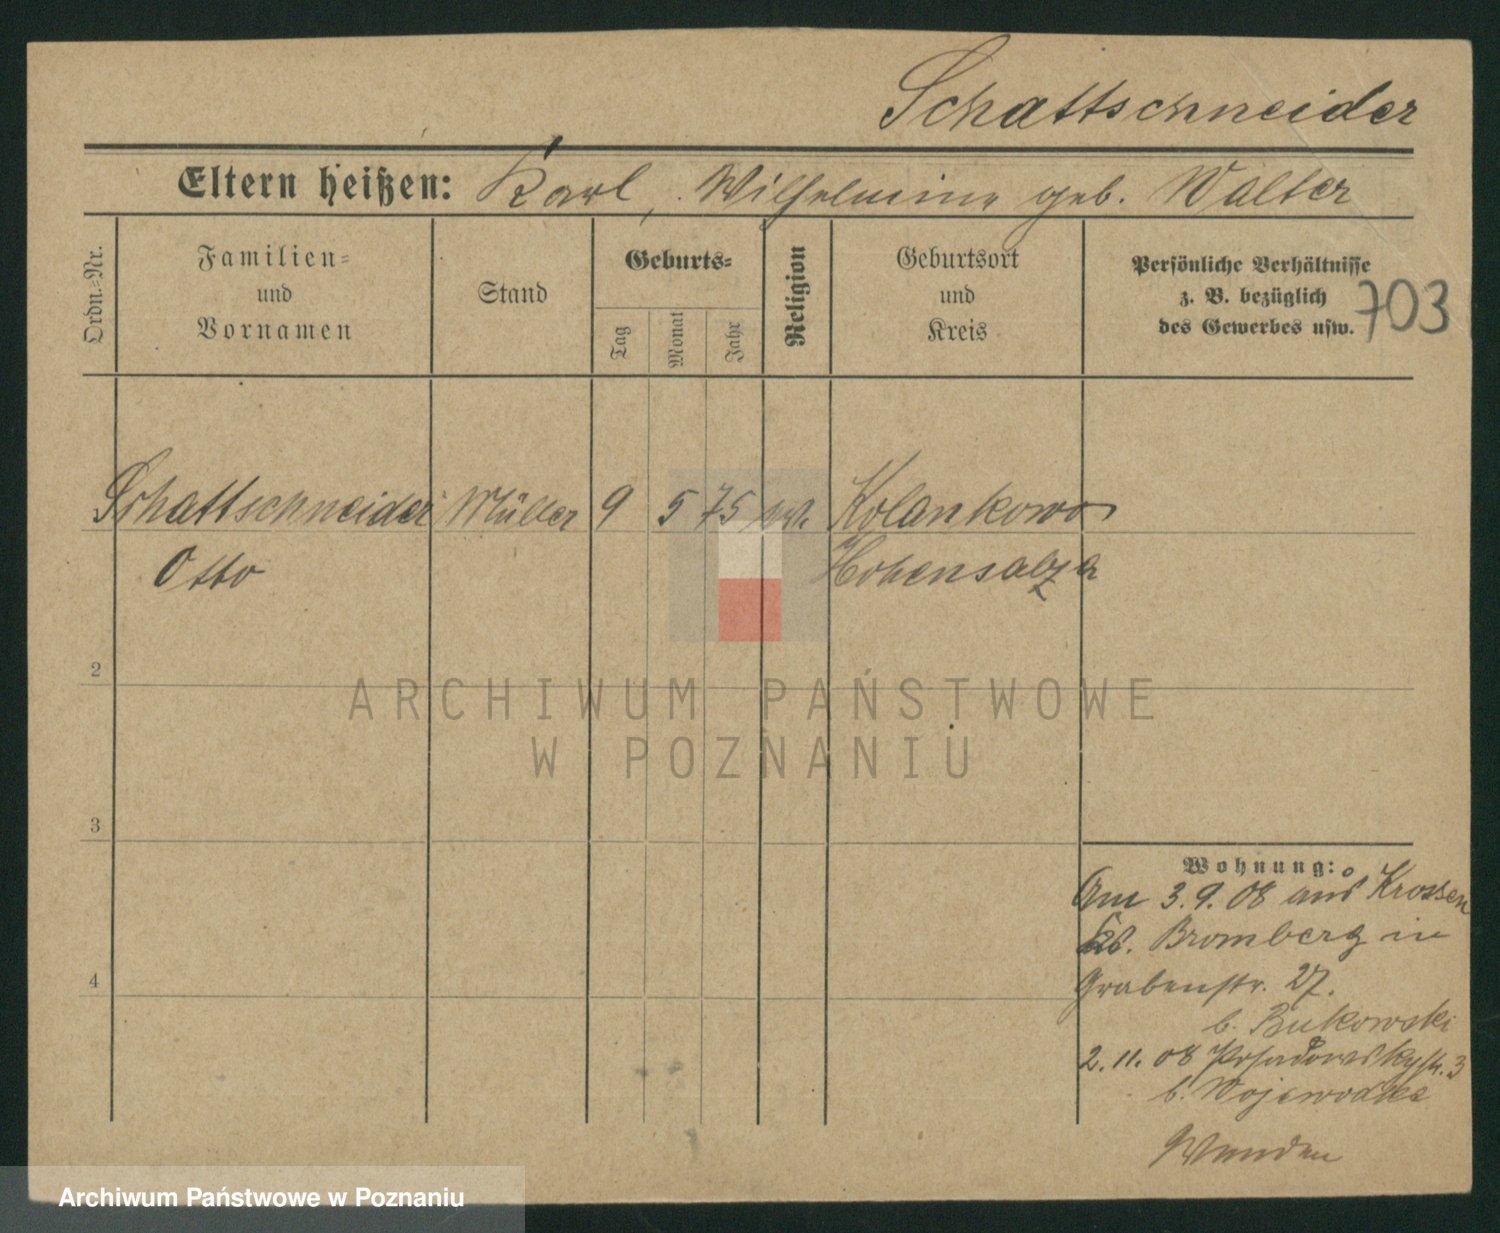 Schattschneider
Eltern heißen: Karl, Wilhelmine geb. Walter
Ordn.-Nr.
Familien-
und
Vornamen
Stand
Geburts-
Tag
Monat
Jahr
Religion
Geburtsort
und
Kreis
Persönliche Verhältnisse
z. B. bezüglich
des Gewerbes usw.
703
Schattschneider Müller 9 5 75 Kolankowo
Otto Hohensalza
2
ARCHIWUM PAŃSTWOWE
W POZNANIU
3
4
Wohnung:
Am 3.9.08 aus Krossen
Bromberg in
Grabenstr. 27.
b. Bukowski
2.11.08 Posadowskystr. 3
b. Wojewodka
Archiwum Państwowe w Poznaniu